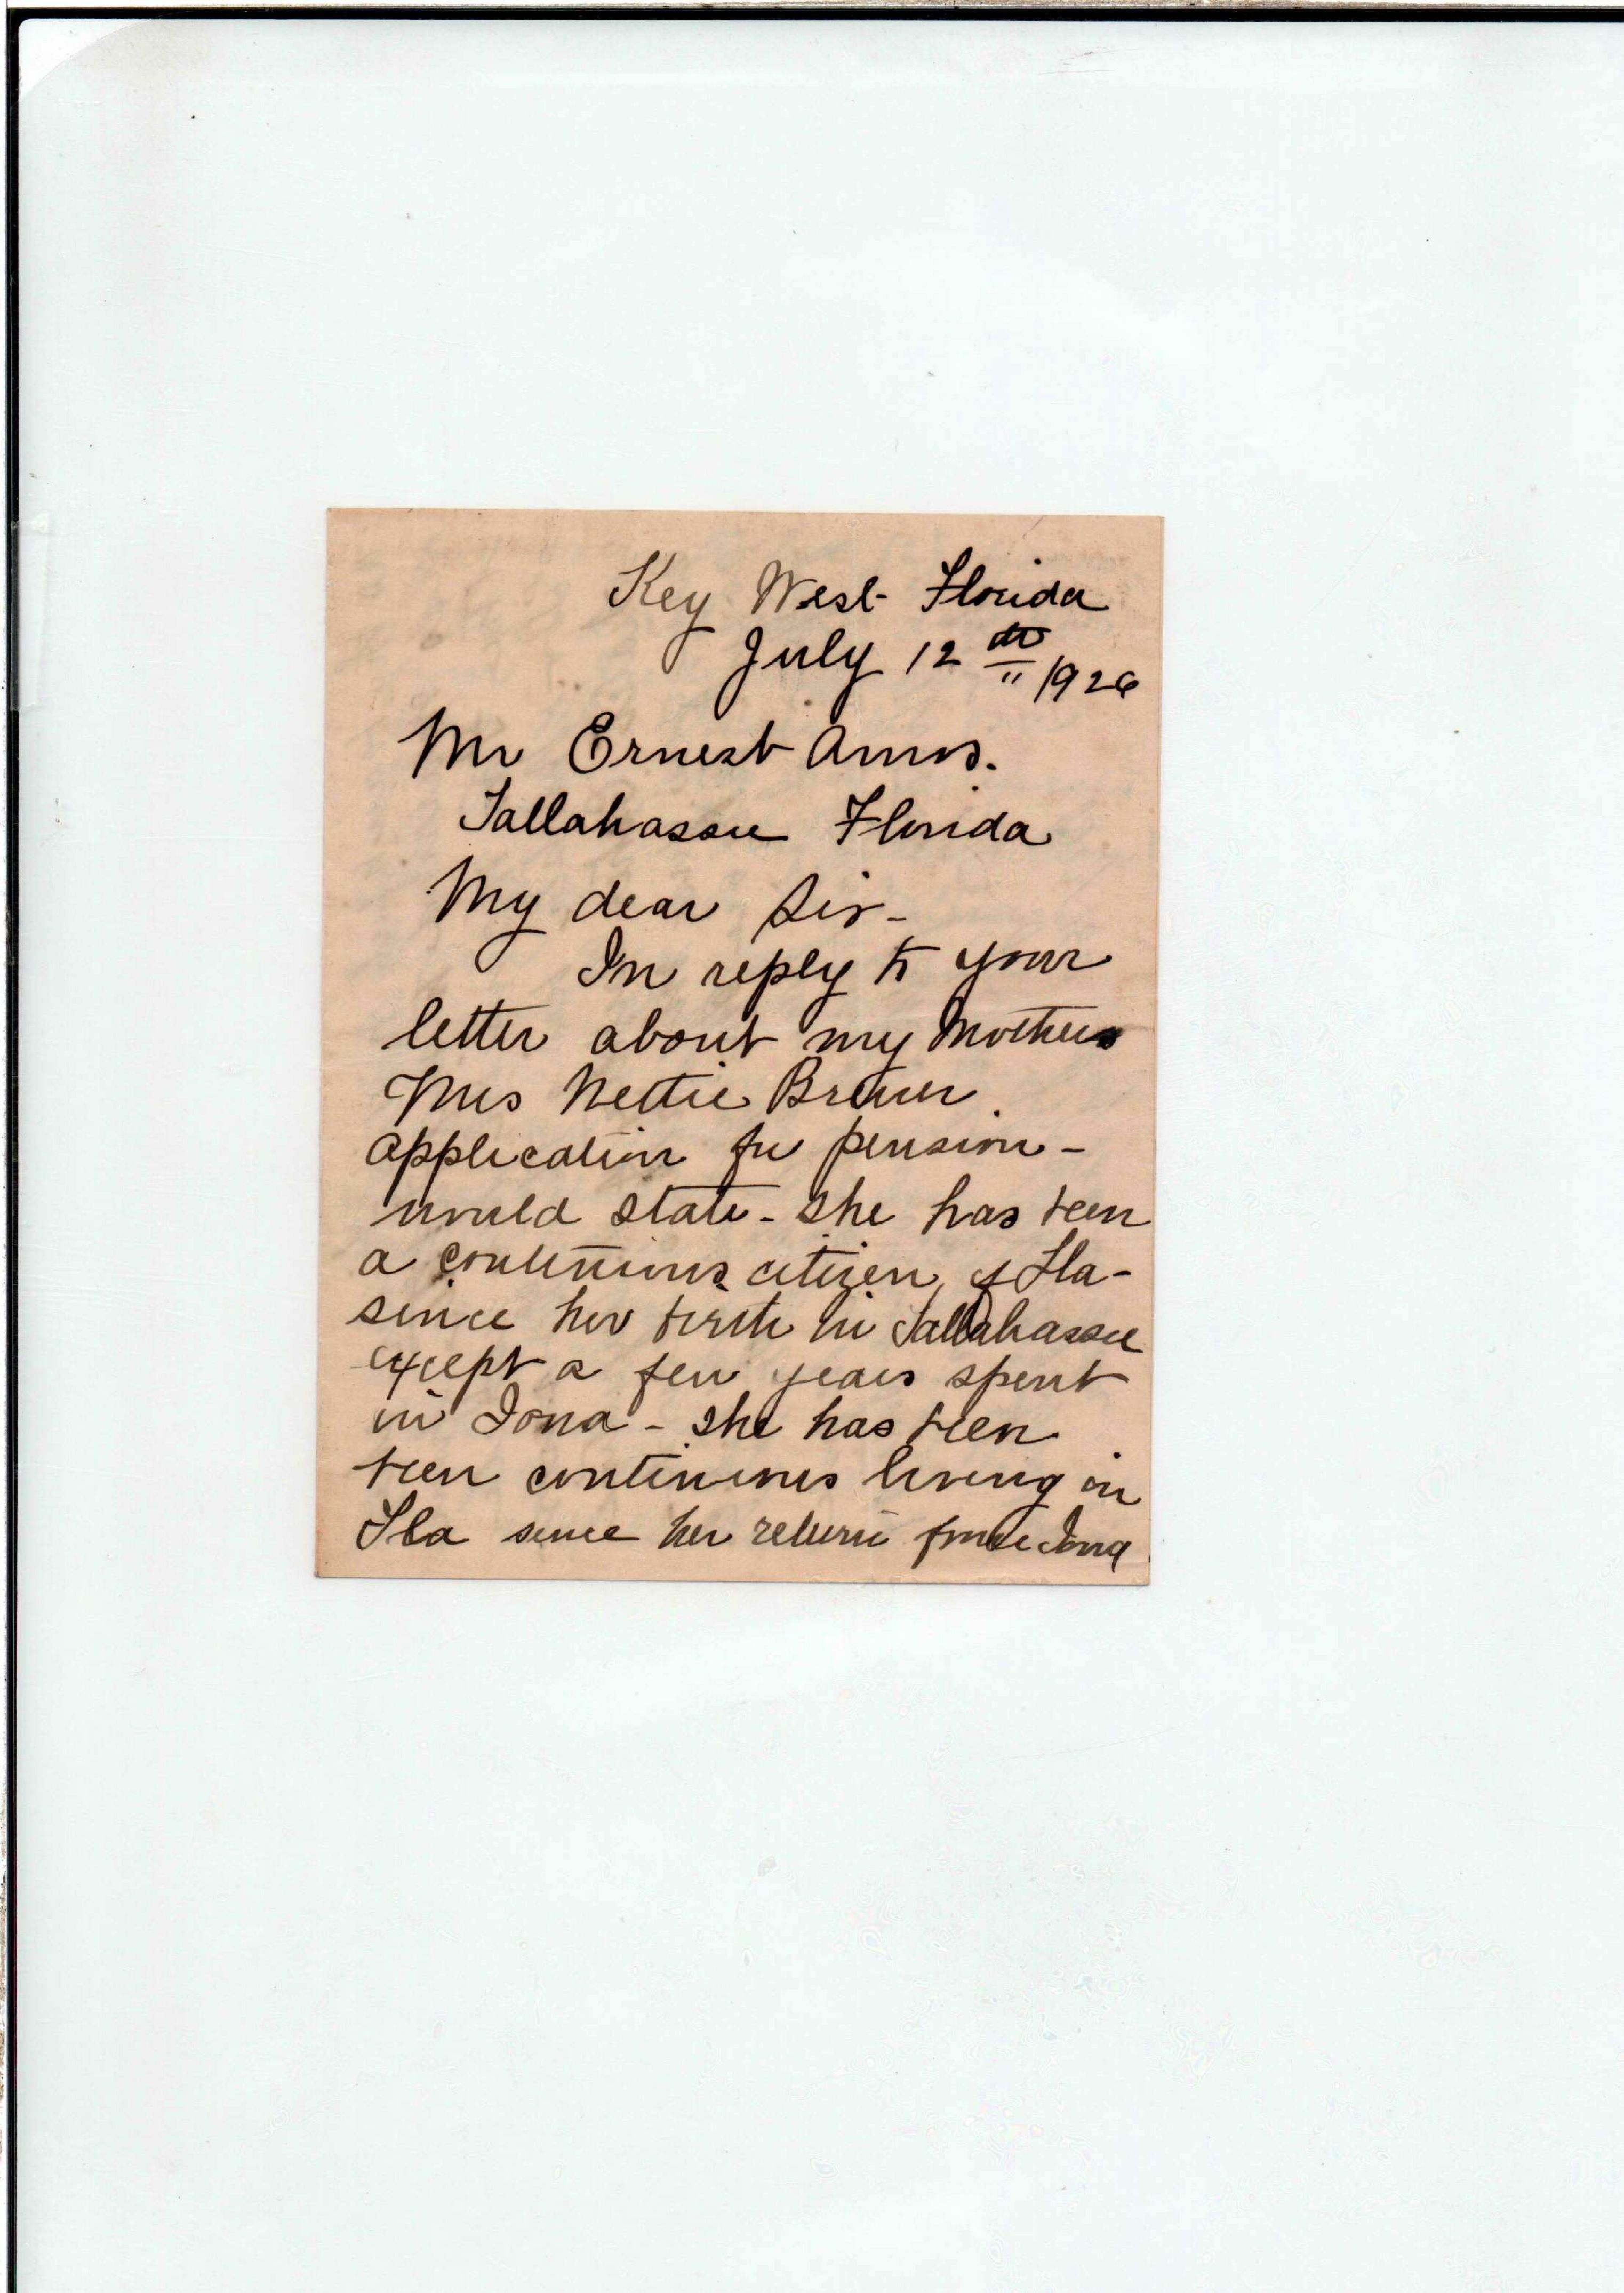 Key West Florida
July 12th 1926
Mr Ernest Amos.
Tallahassee Florida
My dear Sir-
In reply to your
letter about my Mothers
Mrs Nettie Brewer
application for pension -
would state - She has been
a continuous citizen of Fla -
since her birth in Tallahassee
except a few years spent
in Iowa - She has been
been continuous living in
Fla since her return from Iowa